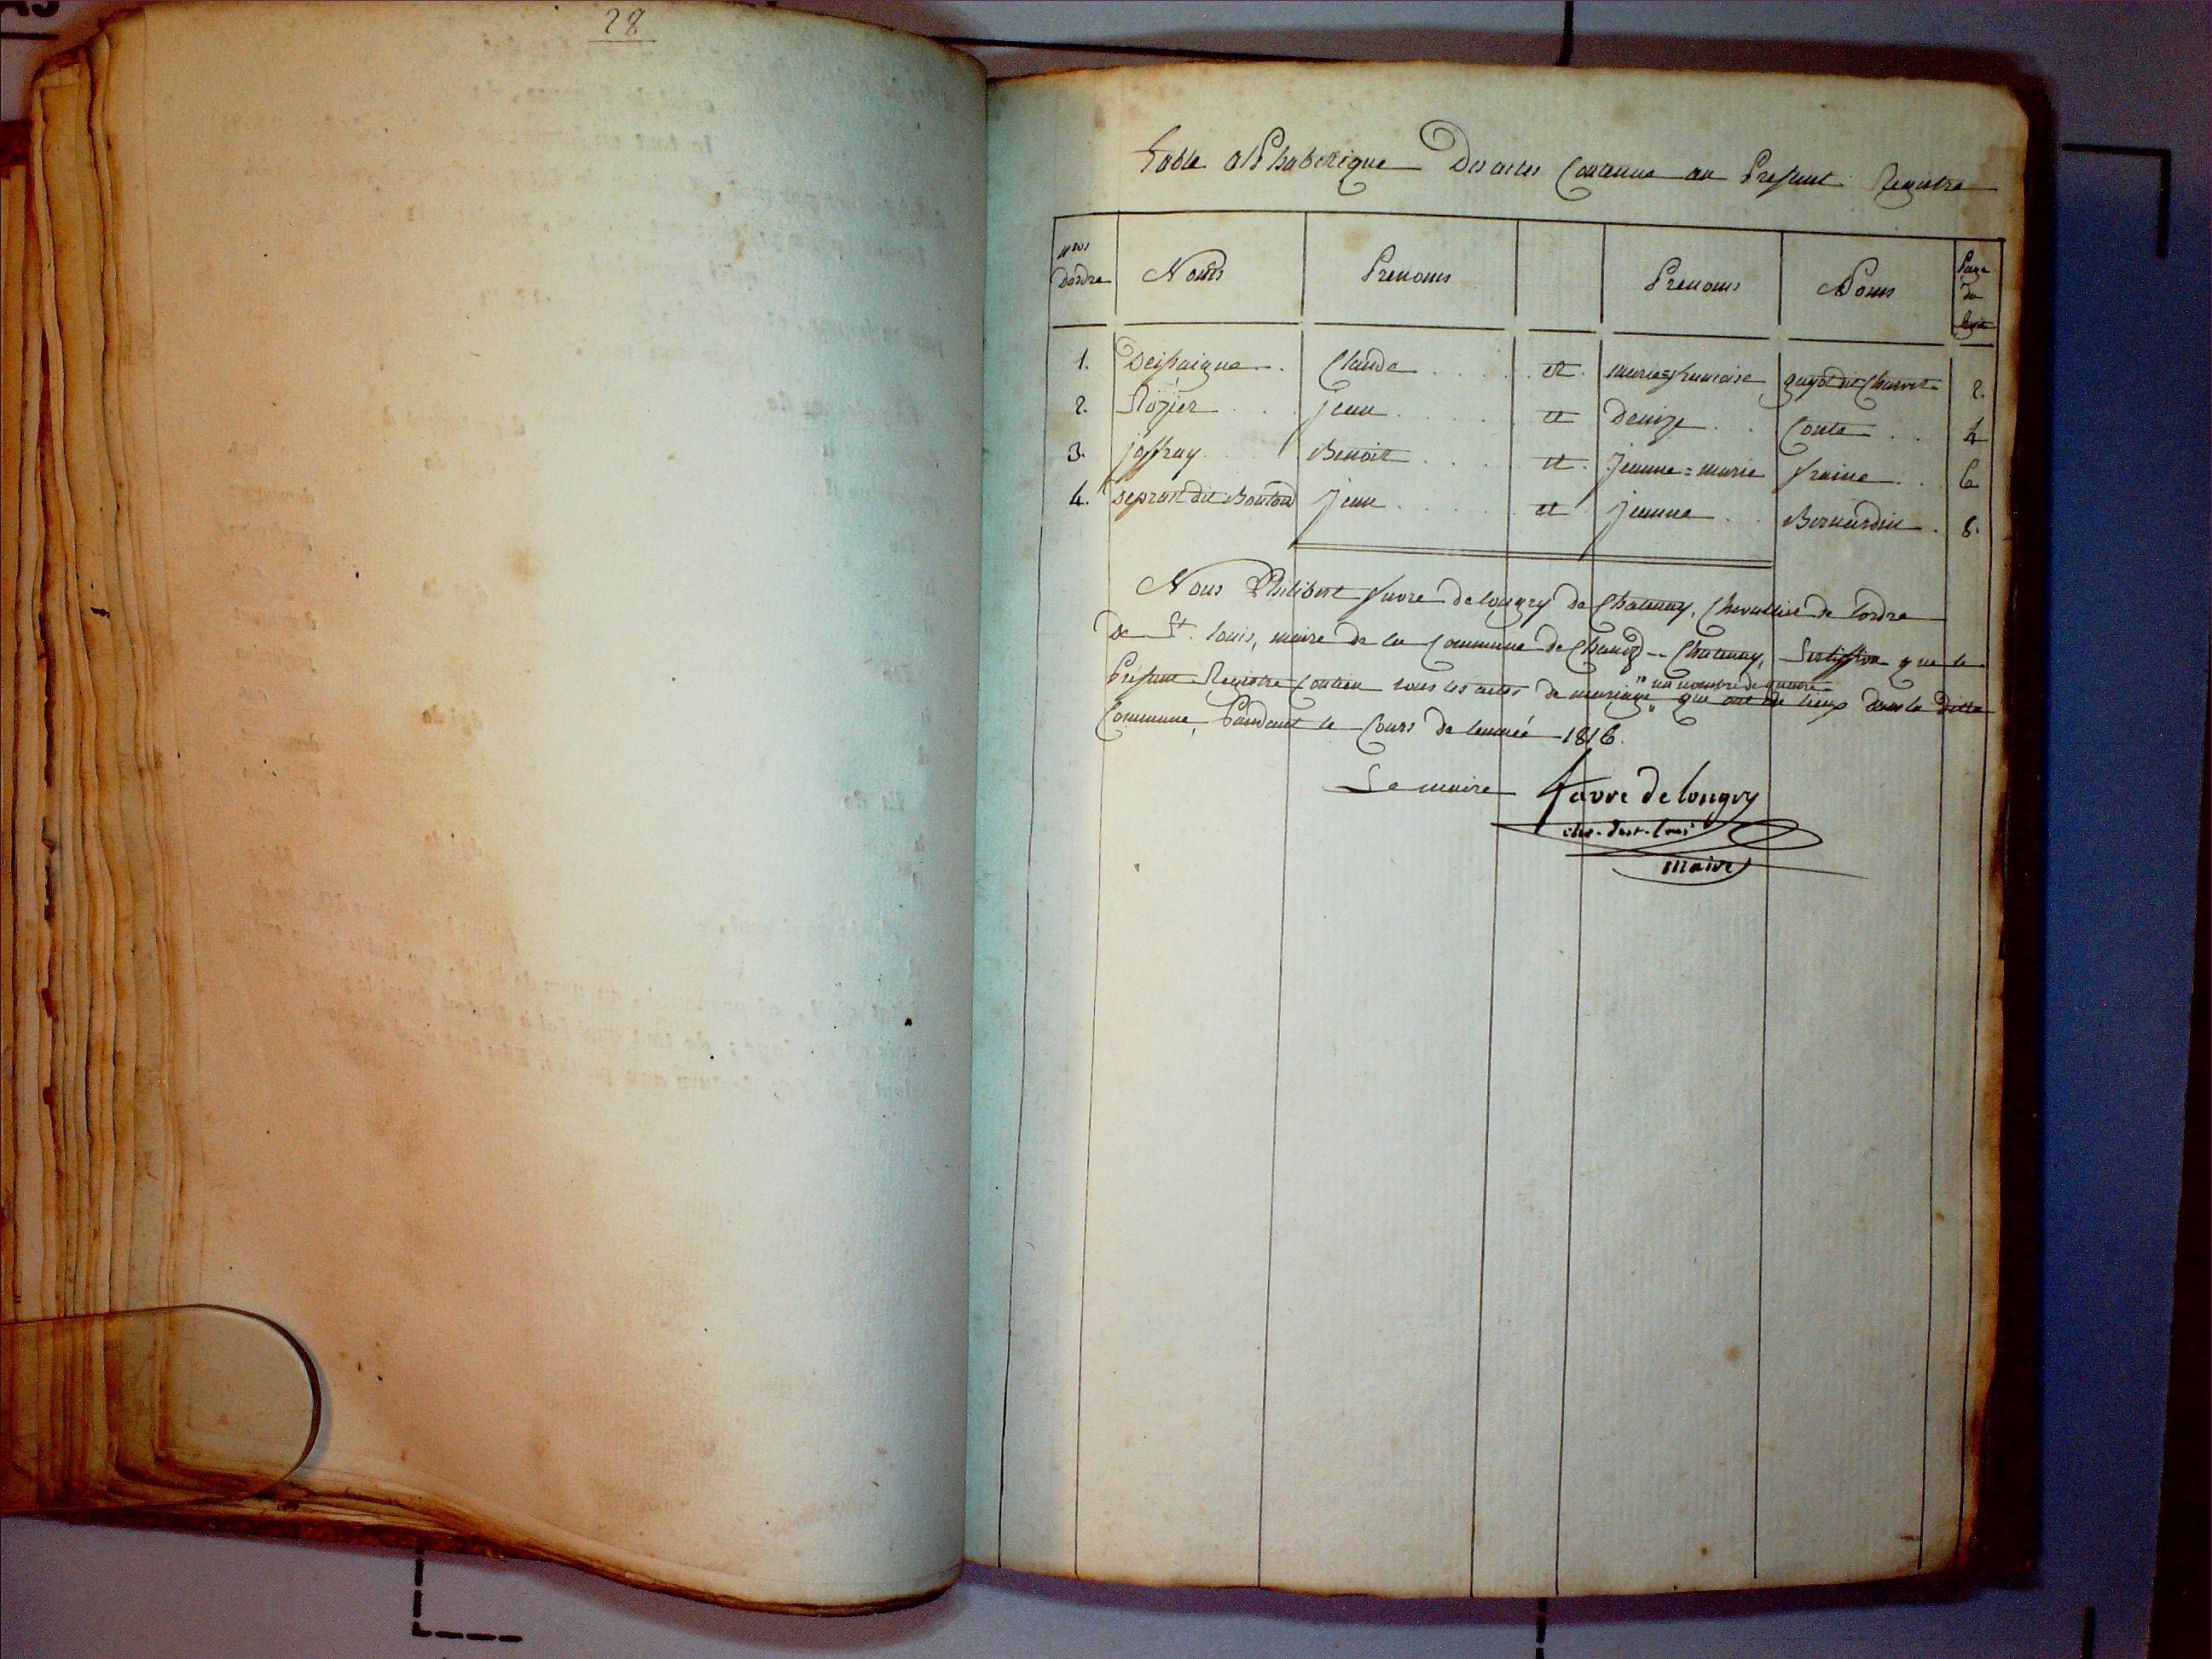 28
Table alphabetique Des actes Contenue au Present Registre
Nos Dordre Noms Prenoms Prenoms Noms Page du
1. Claude et marie=francoise guyot dit Charvet 2.
2. Rozier jean et Denize Conte 4
3. joffray Benoit et Jeanne=marie fraine 6
4. Deprost dit Bouton Jean et Jeanne Bernardin 8.
Nous Philibert favre de longry de Chatenay, Chevallier de lordre
De St. louis, maire de la Commune de Chatenay, que le
Present Registre Contien tous les actes de mariage "au nombre de quatre" que ont eu lieux dans la Ditte
Commune, Pandant le Cours de lannéé 1816.
Le maire favre de longry
che. de st. louis
maire